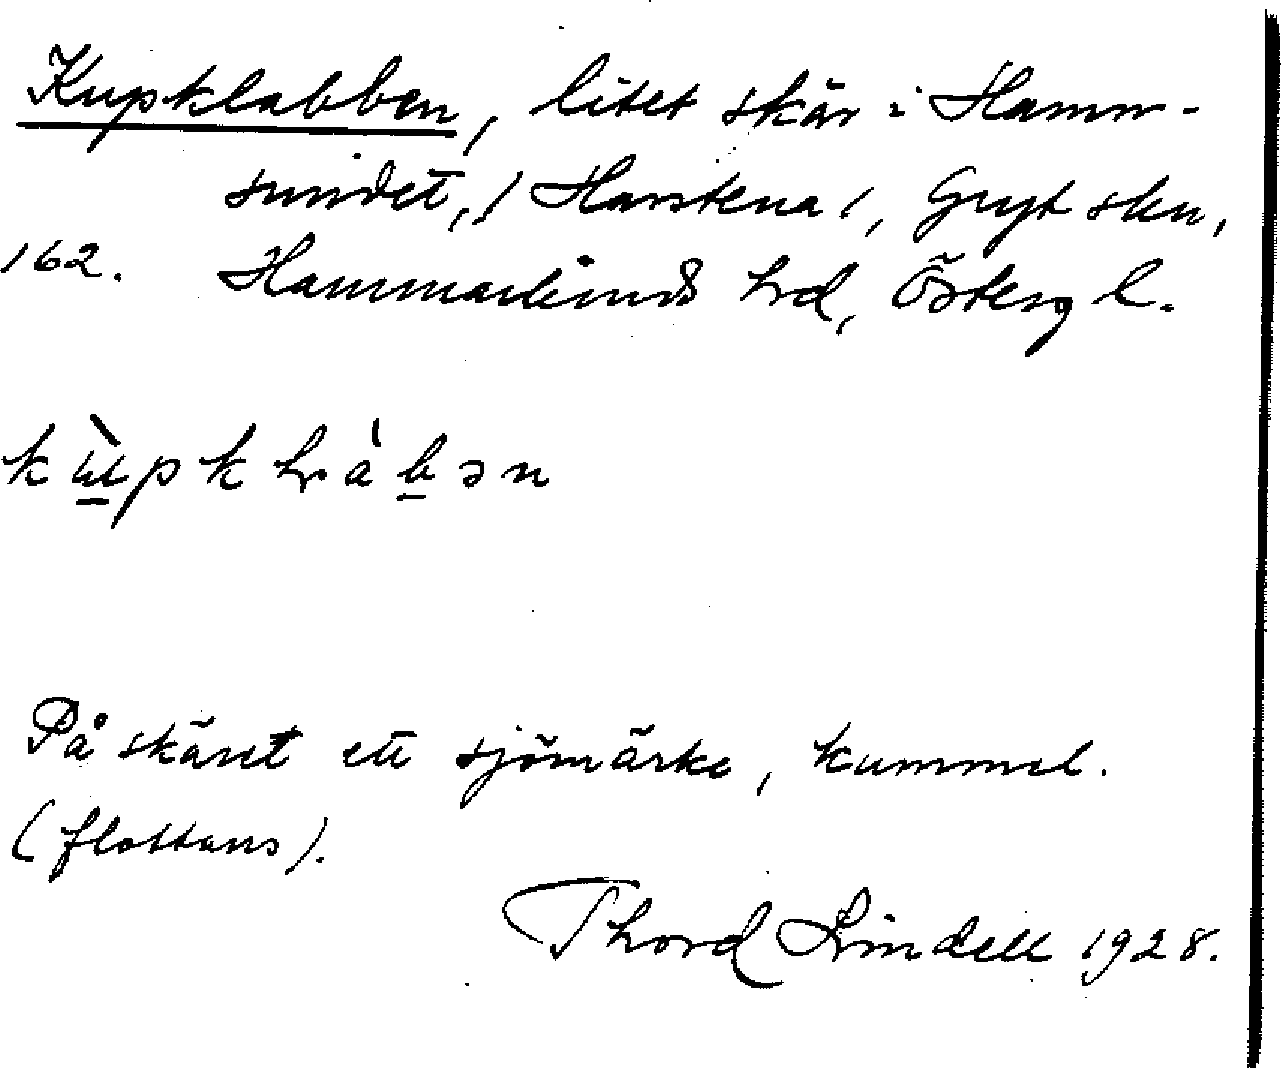 Kupklabben, litet skär i Hamn-
sundet, (Harstena), Gryt skn,
162. Hammarkinds hd, Östergl.
kùpklábən
På skäret ett sjömärke, kummel.
(flottans).
Thord Lindell 1928.